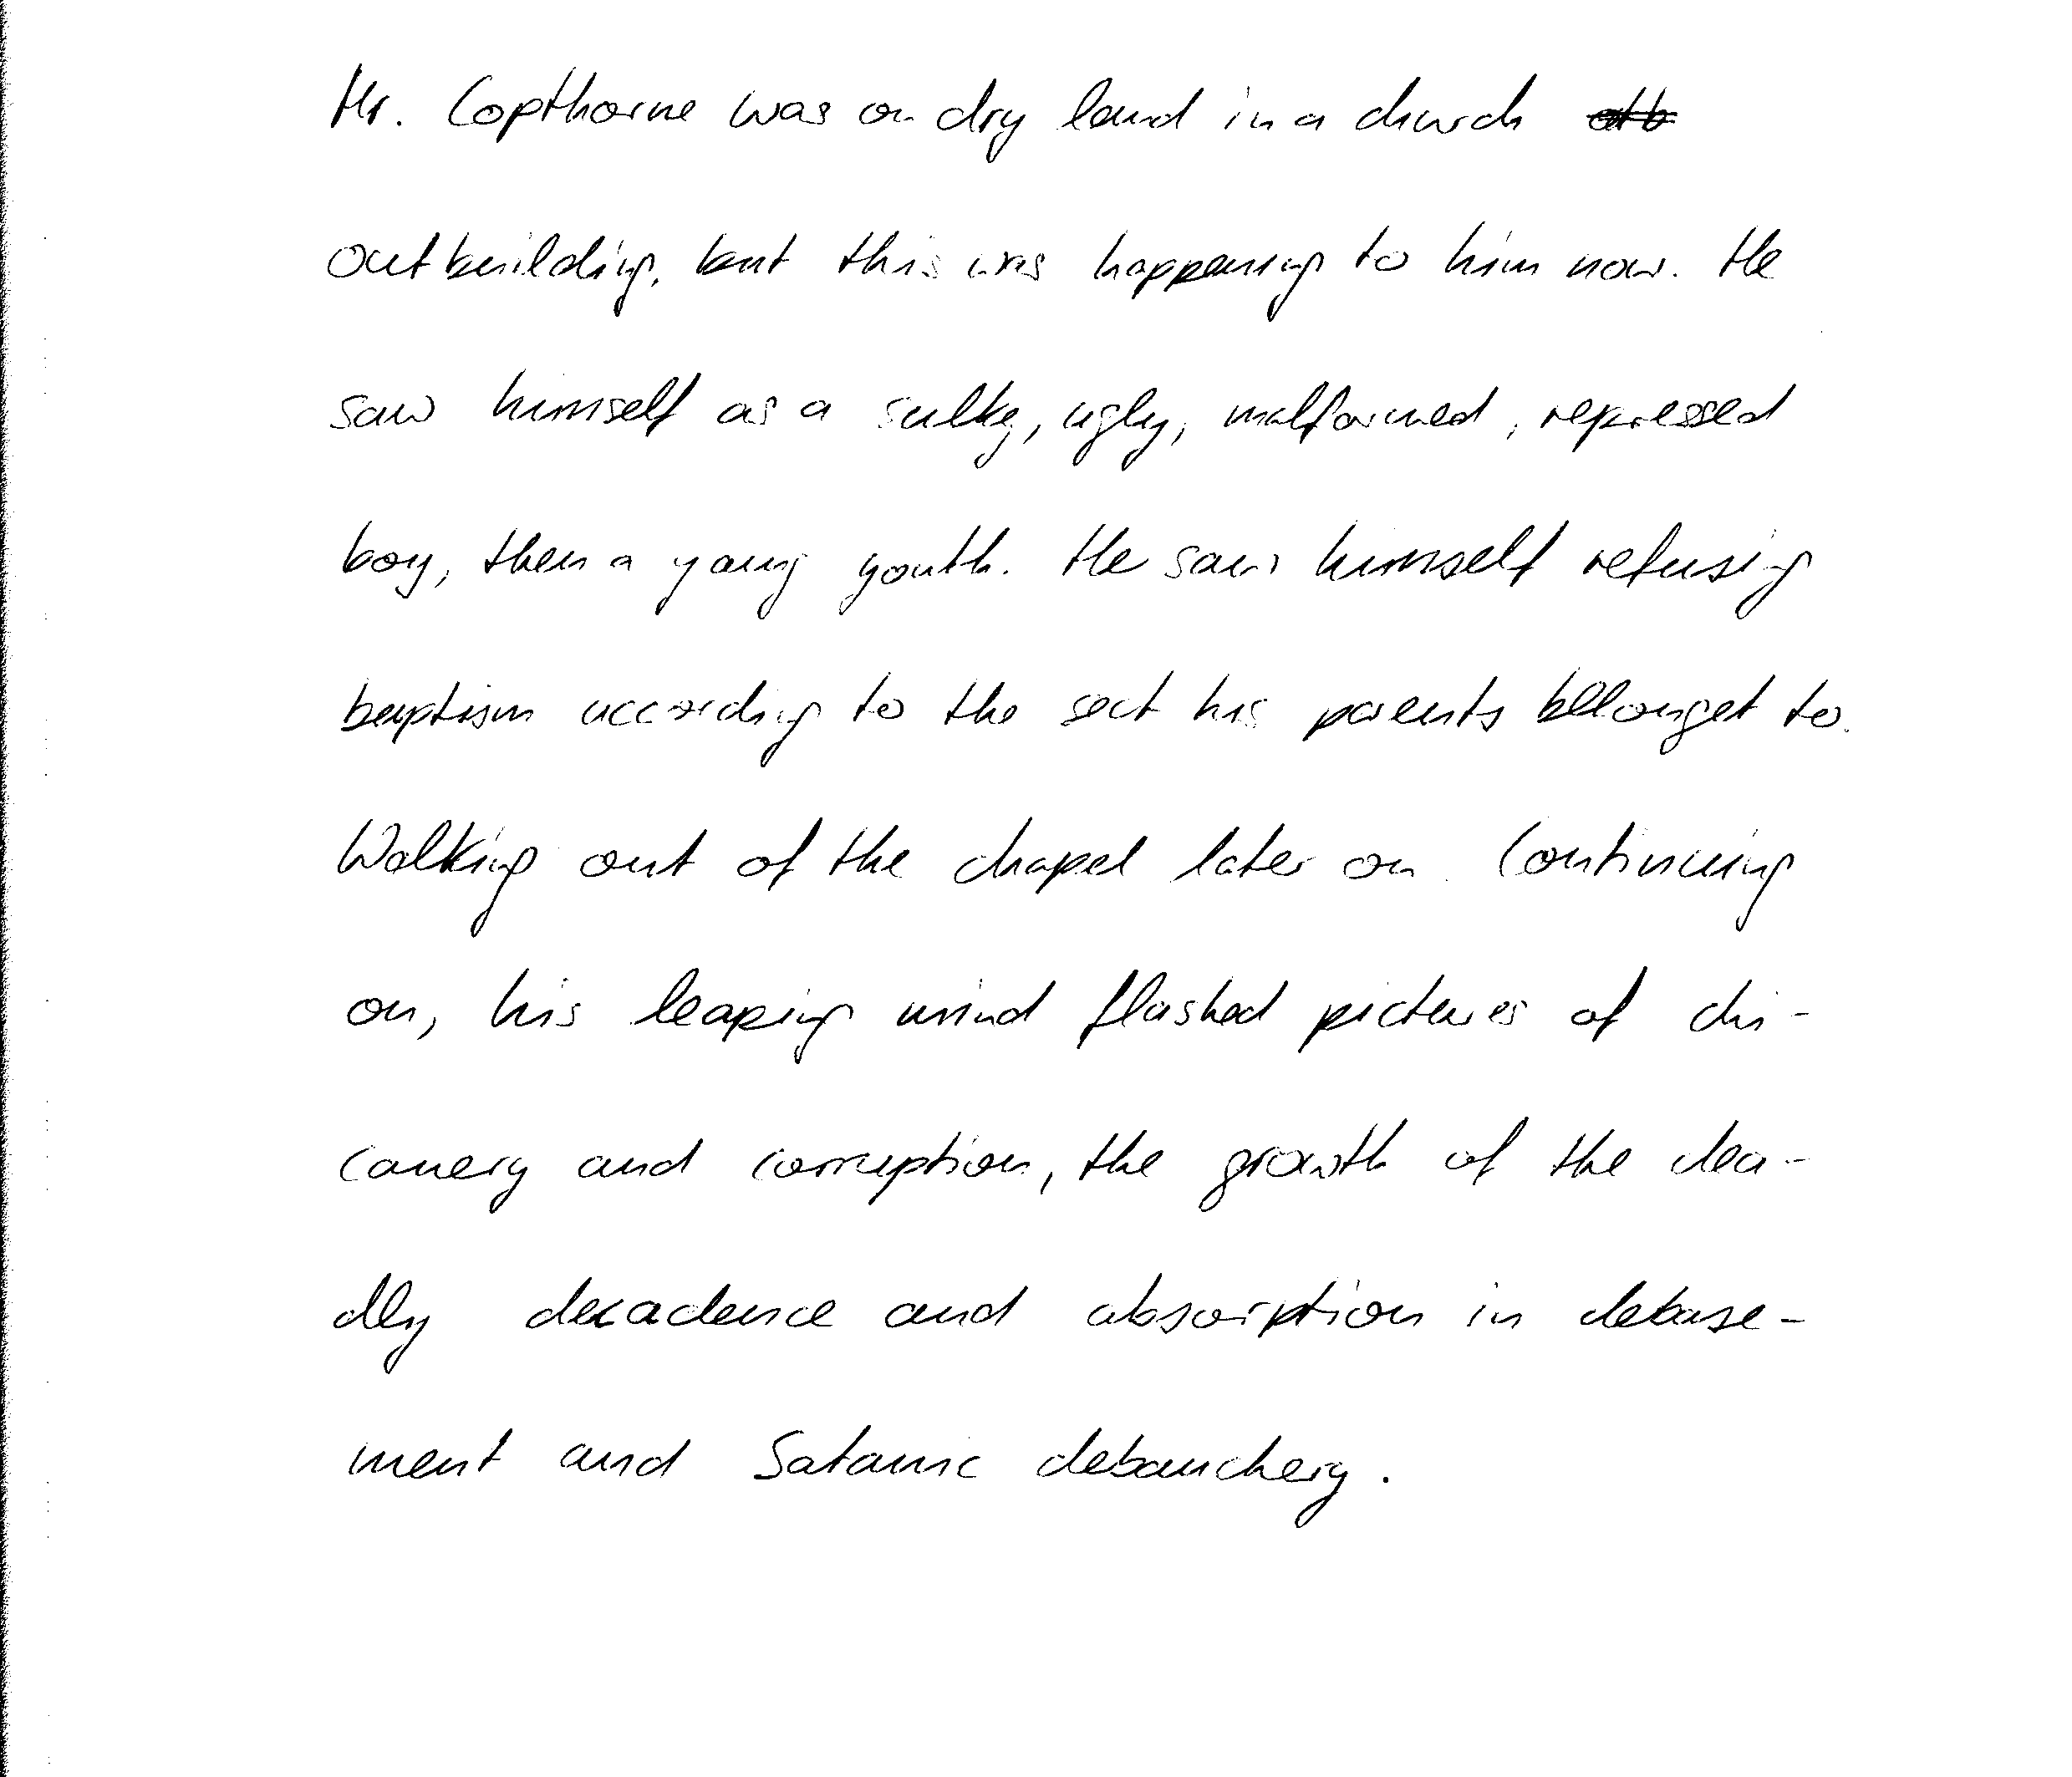 Mr. Copthorne was on dry land in a church
outbuilding, but this was happening to him now. He
saw himself as a sulky, ugly, malformed, repressed
boy, then a young youth. He saw himself refusing
baptism according to the sect his parents bellonget to.
Walking out of the chapel later on. Continuing
on, his leaping mind flashed pictures of chi-
canery and corruption, the growth of the dea-
dly decadence and absorption in debase-
ment and Satanic debauchery.